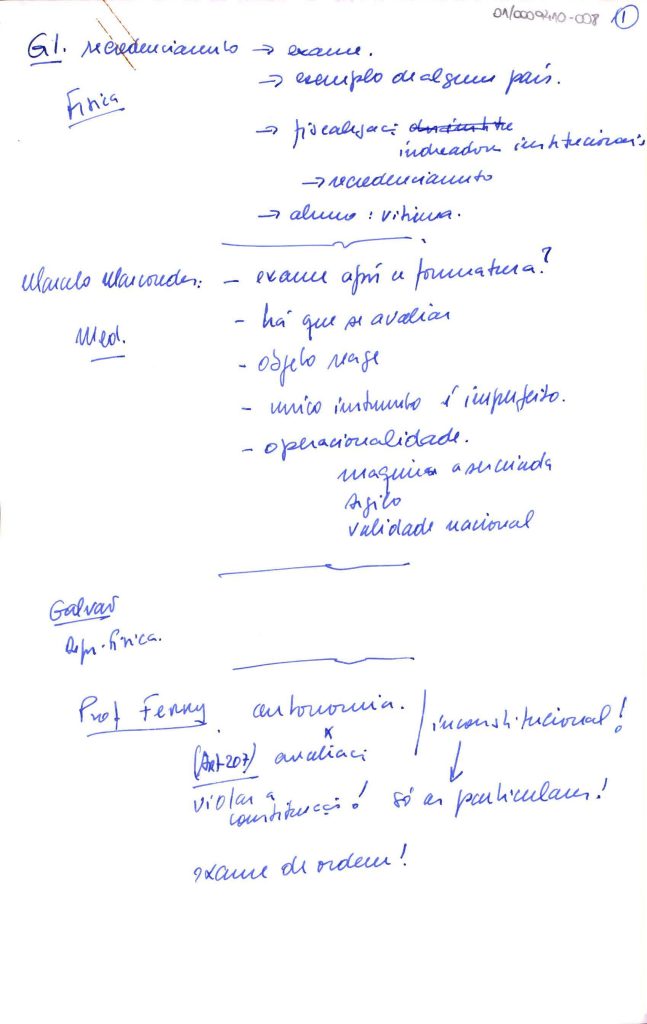 01/0009410-008 1
G1. recredenciamento → exame.
→ exemplo de algum país.
Física
→ fiscalizaçã
indicadores institucionais
→ recredenciamento
→ aluno : vítima.
Marcelo Marcondes: - exame após a formatura?
Med.
- há que se avaliar
- objeto reage
- unico instrumento é imperfeito.
- operacionalidade.
maquina
sigilo
validade nacional
Galvão
Depr. Física.
Prof Ferny. autonomia. / inconstitucional!
x
(Art-207) avaliaçã
violar a constituiçã! só as particulares!
exame de ordem!